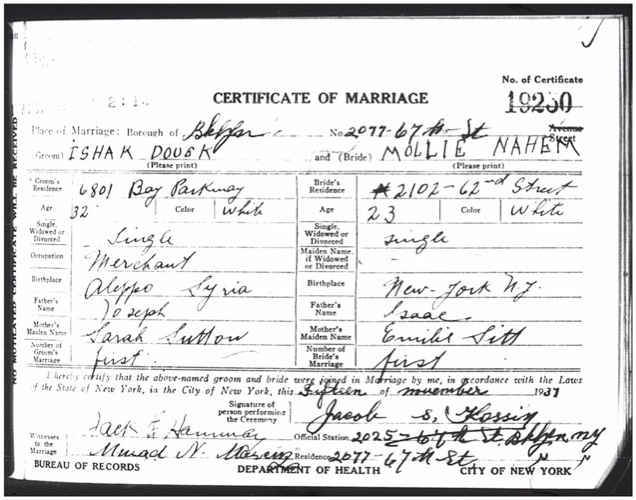 2:14
No. of Certificate
CERTIFICATE OF MARRIAGE
19250
Place of Marriage: Borough of Bklyn No. 2077-67th St Avenue Street
Groom) ISHAK DOUEK and (Bride) MOLLIE NAHEM
(Please print) (Please print)
Groom's Residence 6801 Bay Parkway Bride's Residence #2102-62nd Street
Age 32 Color White Age 23 Color White
Single, Widowed or Divorced Single Single, Widowed or Divorced single
Occupation Merchant Maiden Name, if Widowed or Divorced
Birthplace Aleppo Syria Birthplace New-York N.Y.
Father's Name Joseph Father's Name Isaac
Mother's Maiden Name Sarah Sutton Mother's Maiden Name Emilie Sitt
Number of Groom's Marriage first Number of Bride's Marriage first
I hereby certify that the above-named groom and bride were joined in Marriage by me, in accordance with the Laws
of the State of New York, in the City of New York, this fifteen of november 1931
Signature of person performing the Ceremony Jacob S.
Witnesses to the Marriage Jack Official Station 2025-67th St Bklyn NY
Murad N. Residence 2077-67th St
BUREAU OF RECORDS DEPARTMENT OF HEALTH CITY OF NEW YORK
NO MUTILATED CERTIFICATE WILL BE RECEIVED